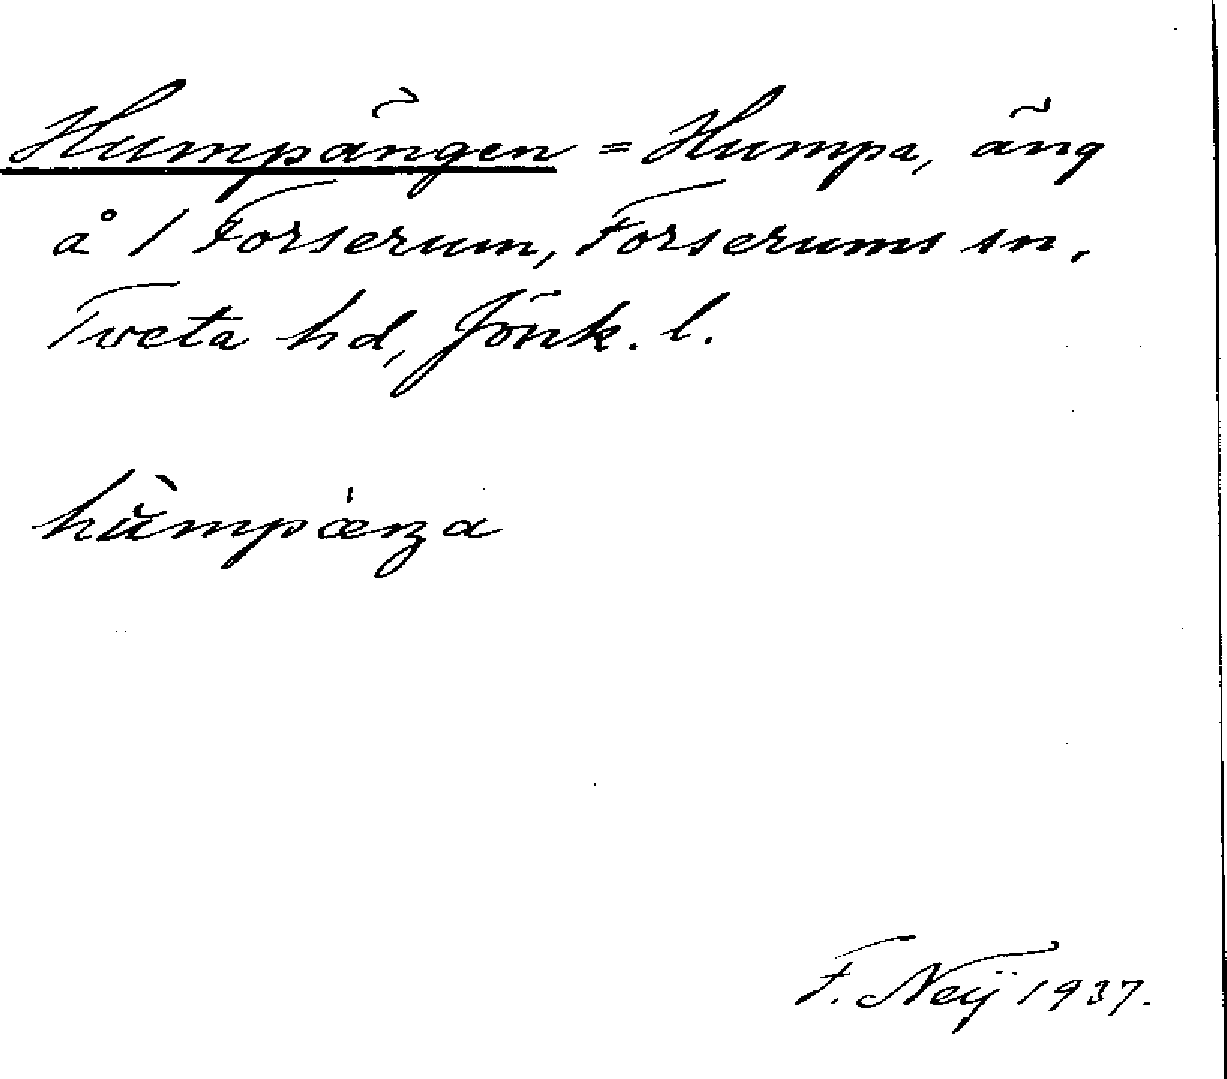 Humpängen = Humpa, äng
å 1 Forserum, Forserums sn,
Tveta hd, Jönk. l.
hùmpæ̍ŋa
F. Neÿ 1937.